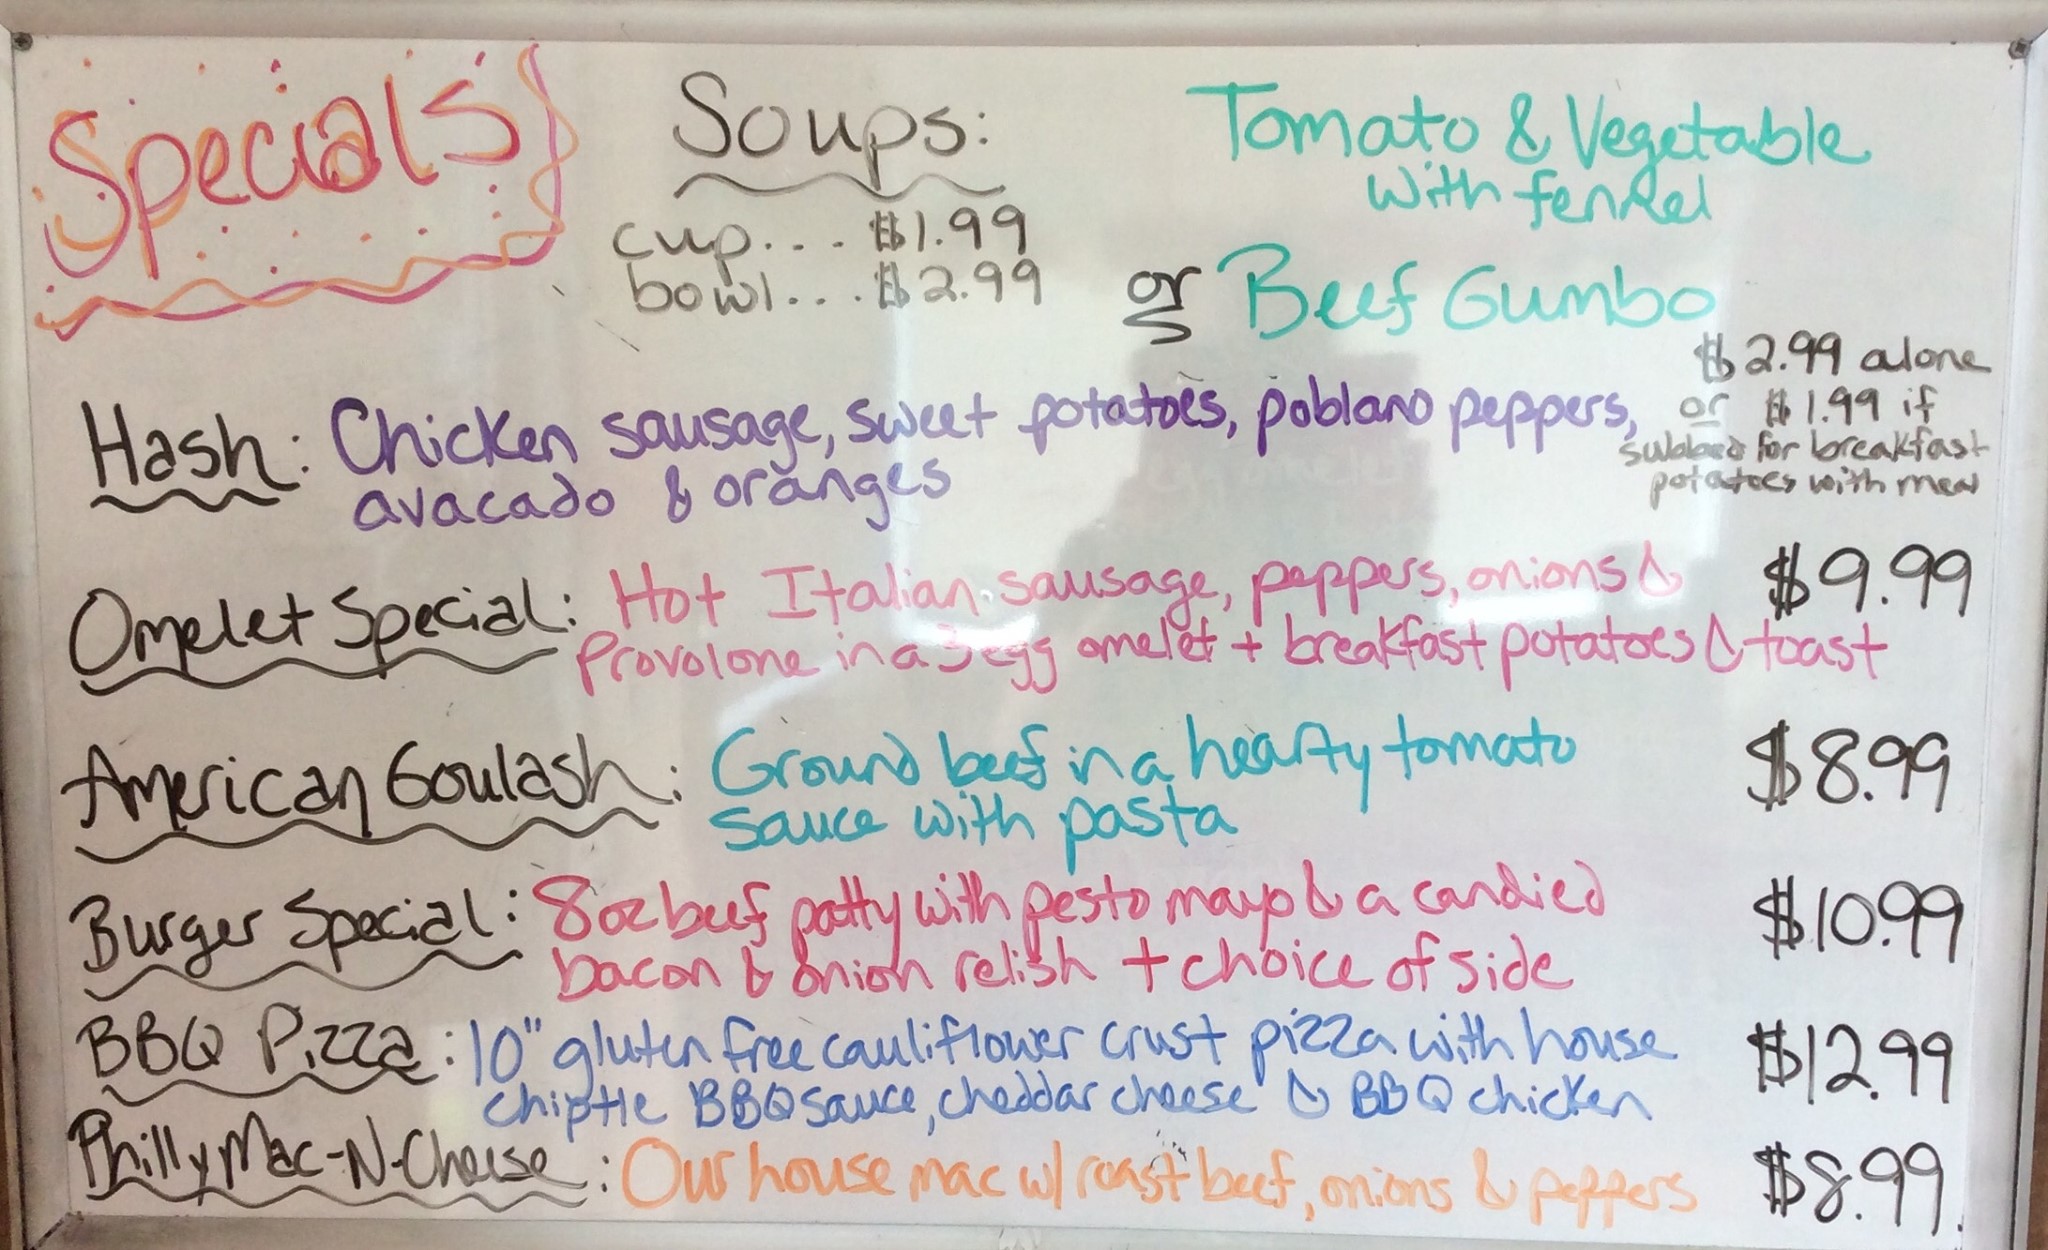 Specials
Soups:
cup... $1.99
bowl... $2.99
Tomato & Vegetable
with fennel
or Beef Gumbo
Hash: Chicken sausage, sweet potatoes, poblano peppers,
avacado & oranges
$2.99 alone
or $1.99 if
subbed for breakfast
potatoes with meal
Omelet Special: Hot Italian sausage, peppers, onions & $9.99
Provolone in a 3 egg omelet + breakfast potatoes & toast
American Goulash: Ground beef in a hearty tomato $8.99
sauce with pasta
Burger Special: 8oz beef patty with pesto mayo & a candied $10.99
bacon & onion relish + choice of side
BBQ Pizza: 10" gluten free cauliflower crust pizza with house $12.99
chiptle BBQ sauce, cheddar cheese & BBQ chicken
Philly Mac-N-Cheese: Our house mac w/ roast beef, onions & peppers $8.99